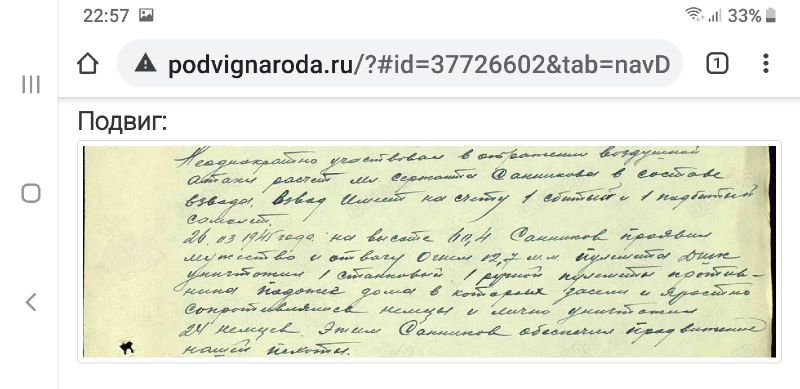 22:57 33%
podvignaroda.ru/?#id=37726602&tab=navD
1
Подвиг:
Неоднократно участвовал в отражении воздушной
атаки расчет мл. сержанта Санникова в составе
взвода. Взвод имеет на счету 1 сбитый и 1 подбитый
самолет.
26.03 1945 года на высоте 60,4 Санников проявил
мужество и отвагу Огнем 12,7 м.м пулемета Дшк
уничтожил 1 станковый 1 ручной пулеметы против-
ника дома в которых засели и яростно
сопротивлялись немцы и лично уничтожил
24 немцев. Этим Санников обеспечил продвижение
нашей пехоты.